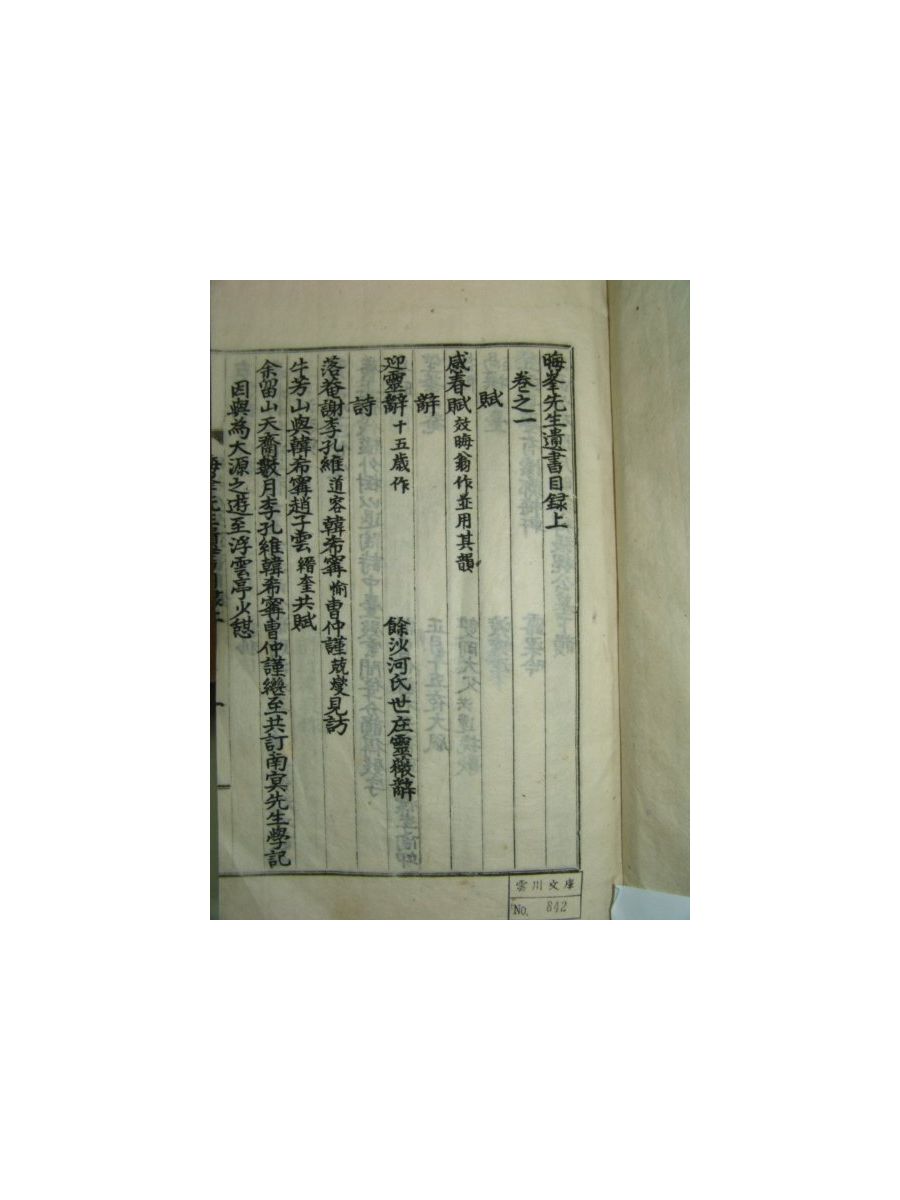 晦峯先生遺書目録上
卷之一
賦
感春賦 效晦翁作並用其韻
辭
迎靈辭 十五歲作 餘沙河氏世庄靈檄辭
詩
落菴謝李孔維 道容 韓希寗 愉 曹仲謹 兢燮 見訪
牛芳山與韓希寗趙子雲 縉奎 共賦
余留山天齋數月李孔維韓希寗曹仲謹繼至共訂南冥先生學記
因與為大源之遊至浮雲亭少憇
雲川文庫
No. 842